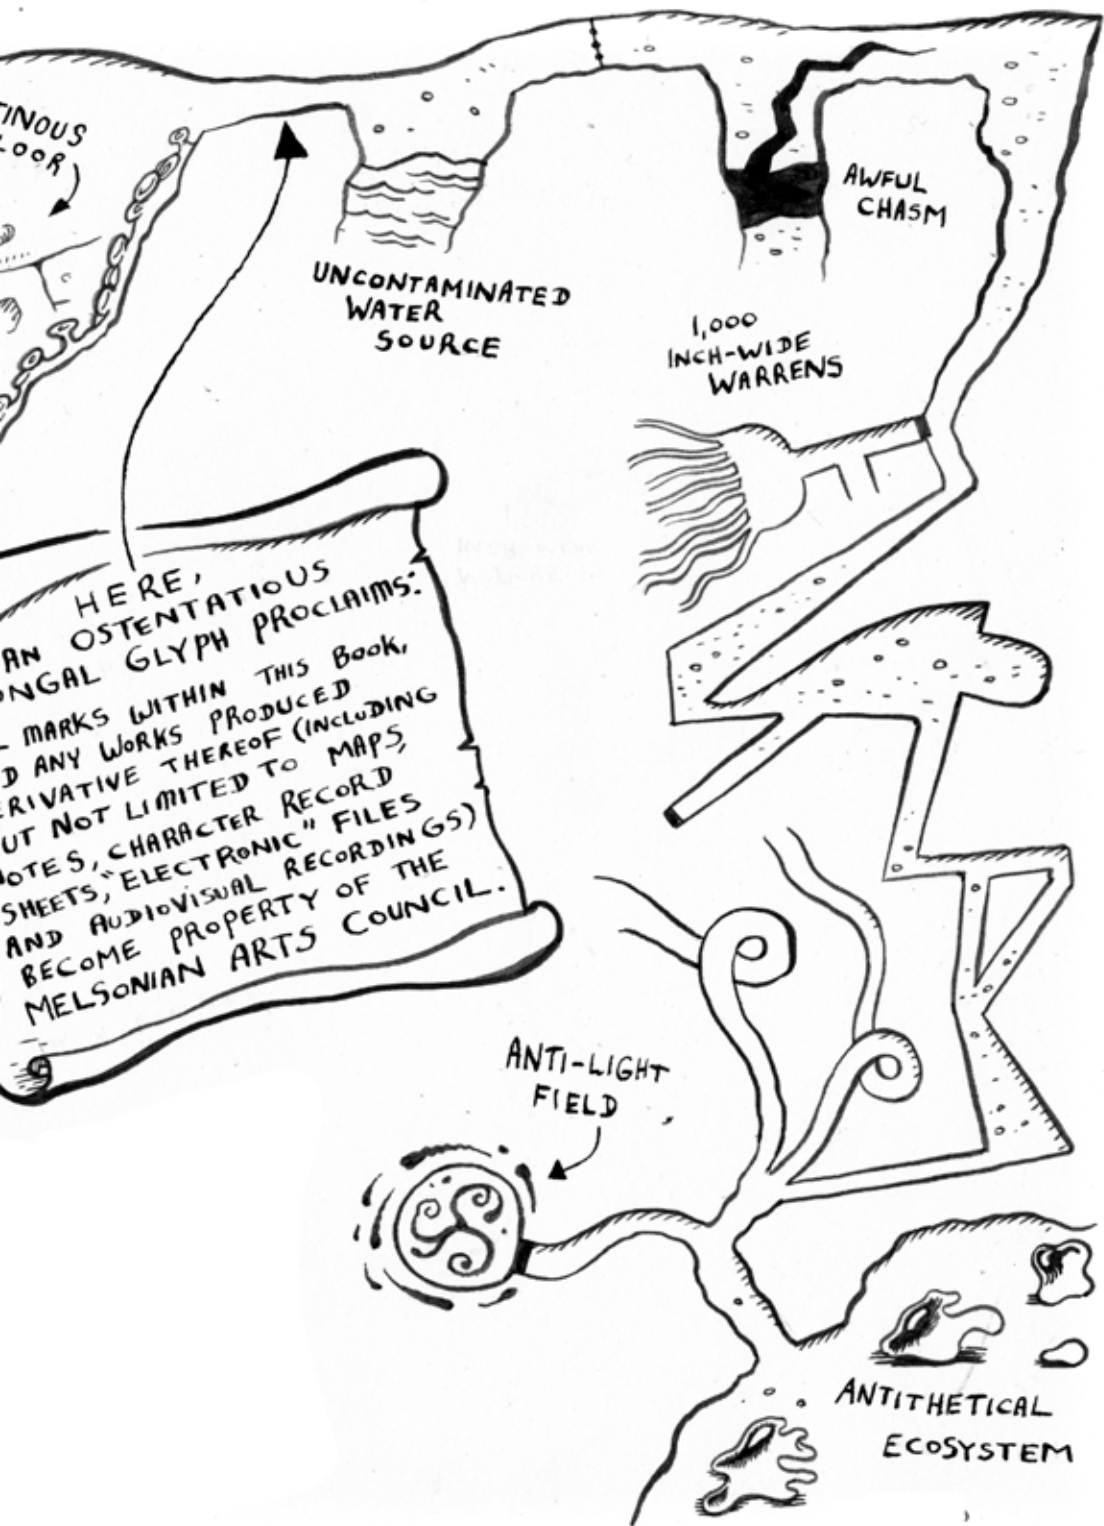 UNCONTAMINATED
WATER
SOURCE
AWFUL
CHASM
1,000
INCH-WIDE
WARRENS
HERE,
AN OSTENTATIOUS
GLYPH PROCLAIMS:
MARKS WITHIN THIS BOOK,
ANY WORKS PRODUCED
THEREOF (INCLUDING
NOT LIMITED TO MAPS,
CHARACTER RECORD
SHEETS, "ELECTRONIC" FILES
AND AUDIOVISUAL RECORDINGS)
BECOME PROPERTY OF THE
MELSONIAN ARTS COUNCIL.
ANTI-LIGHT
FIELD
ANTITHETICAL
ECOSYSTEM